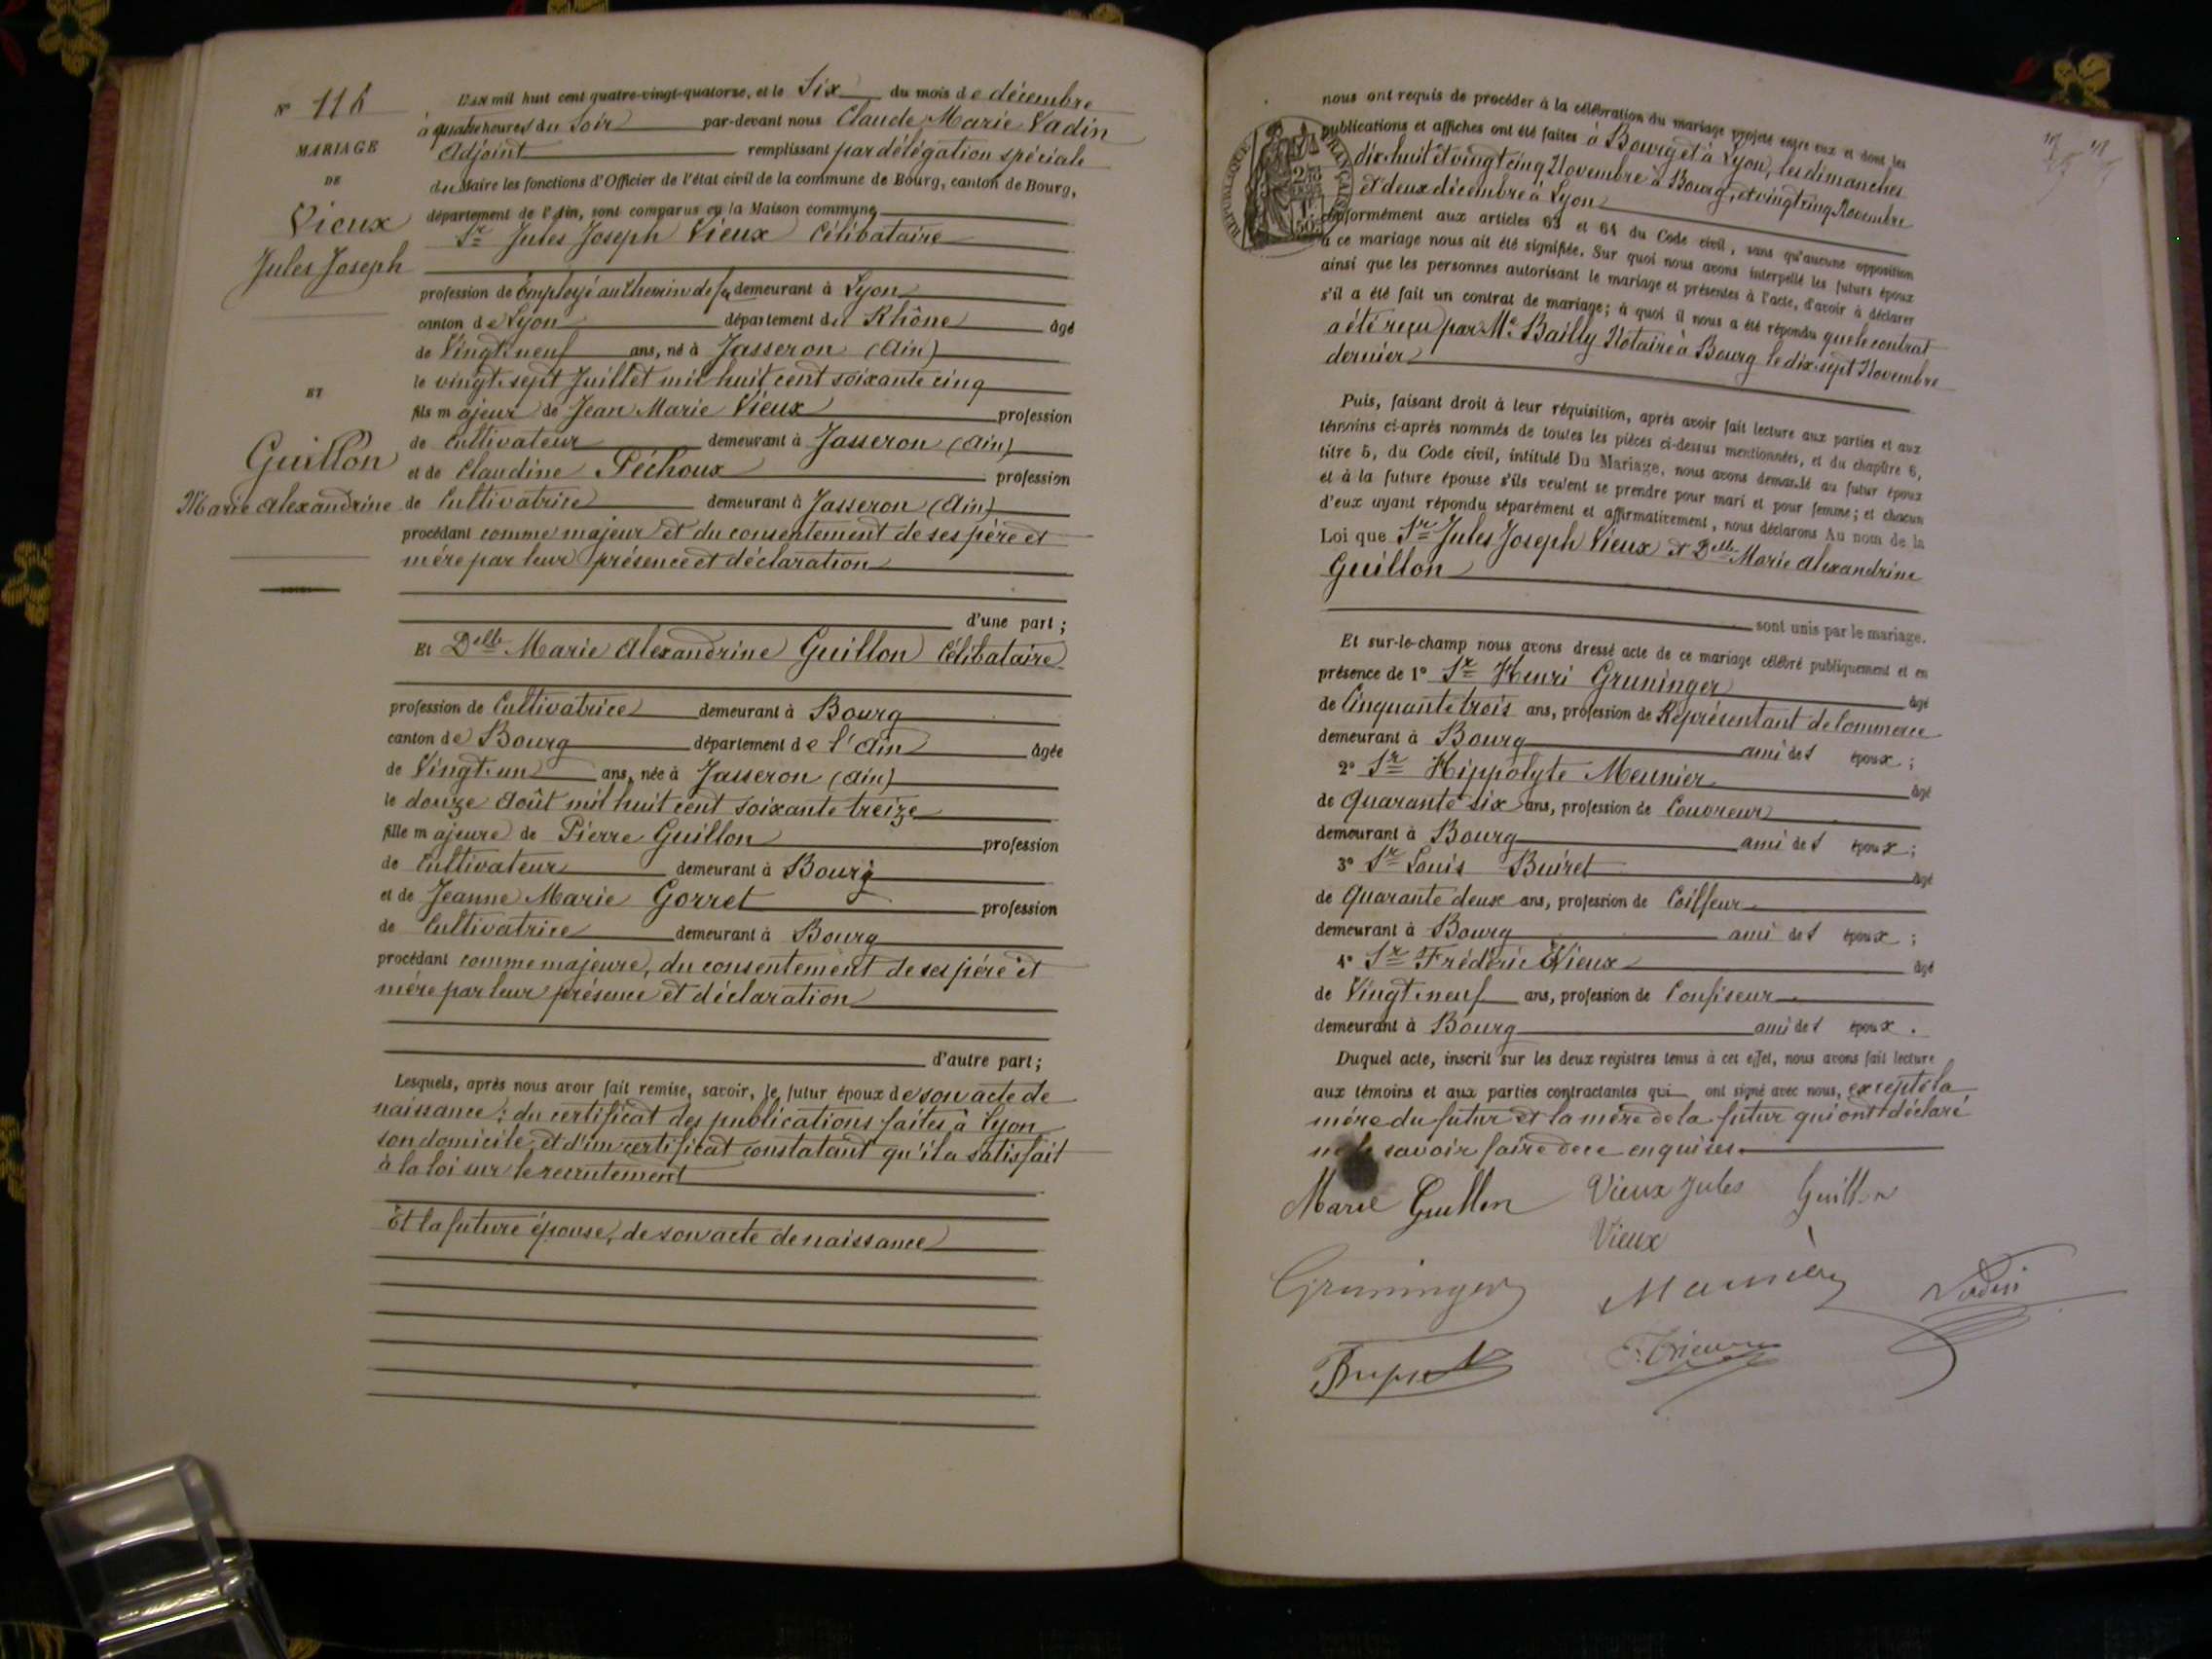 N° 116
MARIAGE
DE
Vieux
Jules Joseph
ET
Guillon
Marie Alexandrine
L'AN mil huit cent quatre-vingt-quatorze, et le Six du mois de décembre
à quatre heures du Soir par-devant nous Claude Marie Vadin
Adjoint remplissant par délégation spéciale
du Maire les fonctions d'Officier de l'état civil de la commune de Bourg, canton de Bourg,
département de l'Ain, sont comparus en la Maison commune
Sr Jules Joseph Vieux Célibataire
profession de Employé au Chemin de fer demeurant à Lyon
canton de Lyon département du Rhône âgé
de Vingt-neuf ans, né à Jasseron (Ain)
le vingt-sept Juillet mil huit cent soixante cinq
fils majeur de Jean Marie Vieux profession
de Cultivateur demeurant à Jasseron (Ain)
et de Claudine Péchoux profession
de Cultivatrice demeurant à Jasseron (Ain)
procédant comme majeur et du consentement de ses père et
mère par leur présence et déclaration
d'une part ;
Et Delle Marie Alexandrine Guillon Célibataire
profession de Cultivatrice demeurant à Bourg
canton de Bourg département de l'Ain âgée
de Vingt-un ans, née à Jasseron (Ain)
le douze Août mil huit cent soixante treize
fille majeure de Pierre Guillon profession
de Cultivateur demeurant à Bourg
et de Jeanne Marie Gorret profession
de Cultivatrice demeurant à Bourg
procédant comme majeure, du consentement de ses père et
mère par leur présence et déclaration
d'autre part ;
Lesquels, après nous avoir fait remise, savoir, le futur époux de son acte de
naissance ; du certificat des publications faites à Lyon
son domicile, et d'un certificat constatant qu'il a satisfait
à la loi sur le recrutement
Et la future épouse, de son acte de naissance
nous ont requis de procéder à la célébration du mariage projeté entre eux et dont les
publications et affiches ont été faites à Bourg et à Lyon, les dimanches
dix-huit et vingt cinq Novembre à Bourg, et vingt cinq Novembre
et deux décembre à Lyon
conformément aux articles 63 et 64 du Code civil, sans qu'aucune opposition
à ce mariage nous ait été signifiée. Sur quoi nous avons interpellé les futurs époux
ainsi que les personnes autorisant le mariage et présentes à l'acte, d'avoir à déclarer
s'il a été fait un contrat de mariage ; à quoi il nous a été répondu que le contrat
a été reçu par Me Bailly Notaire à Bourg le dix-sept Novembre
dernier
RÉPUBLIQUE FRANÇAISE
Puis, faisant droit à leur réquisition, après avoir fait lecture aux parties et aux
témoins ci-après nommés de toutes les pièces ci-dessus mentionnées, et du chapitre 6,
titre 5, du Code civil, intitulé Du Mariage, nous avons demandé au futur époux
et à la future épouse s'ils veulent se prendre pour mari et pour femme ; et chacun
d'eux ayant répondu séparément et affirmativement, nous déclarons Au nom de la
Loi que Sr Jules Joseph Vieux et Delle Marie Alexandrine
Guillon
sont unis par le mariage.
Et sur-le-champ nous avons dressé acte de ce mariage célébré publiquement et en
présence de 1° Sr Henri Gruninger âgé
de Cinquante trois ans, profession de Représentant de Commerce
demeurant à Bourg ami des époux ;
2° Sr Hippolyte Meunier âgé
de Quarante six ans, profession de Couvreur
demeurant à Bourg ami des époux ;
3° Sr Louis Buiret âgé
de Quarante deux ans, profession de Coiffeur
demeurant à Bourg ami des époux ;
4° Sr Frédéric Vieux âgé
de Vingt-neuf ans, profession de Confiseur
demeurant à Bourg ami des époux .
Duquel acte, inscrit sur les deux registres tenus à cet effet, nous avons fait lecture
aux témoins et aux parties contractantes qui ont signé avec nous, excepté la
mère du futur et la mère de la futur qui ont déclaré
ne le savoir faire de ce enquises
Marie Guillon Vieux Jules Guillon
Vieux
Gruninger Meunier Vadin